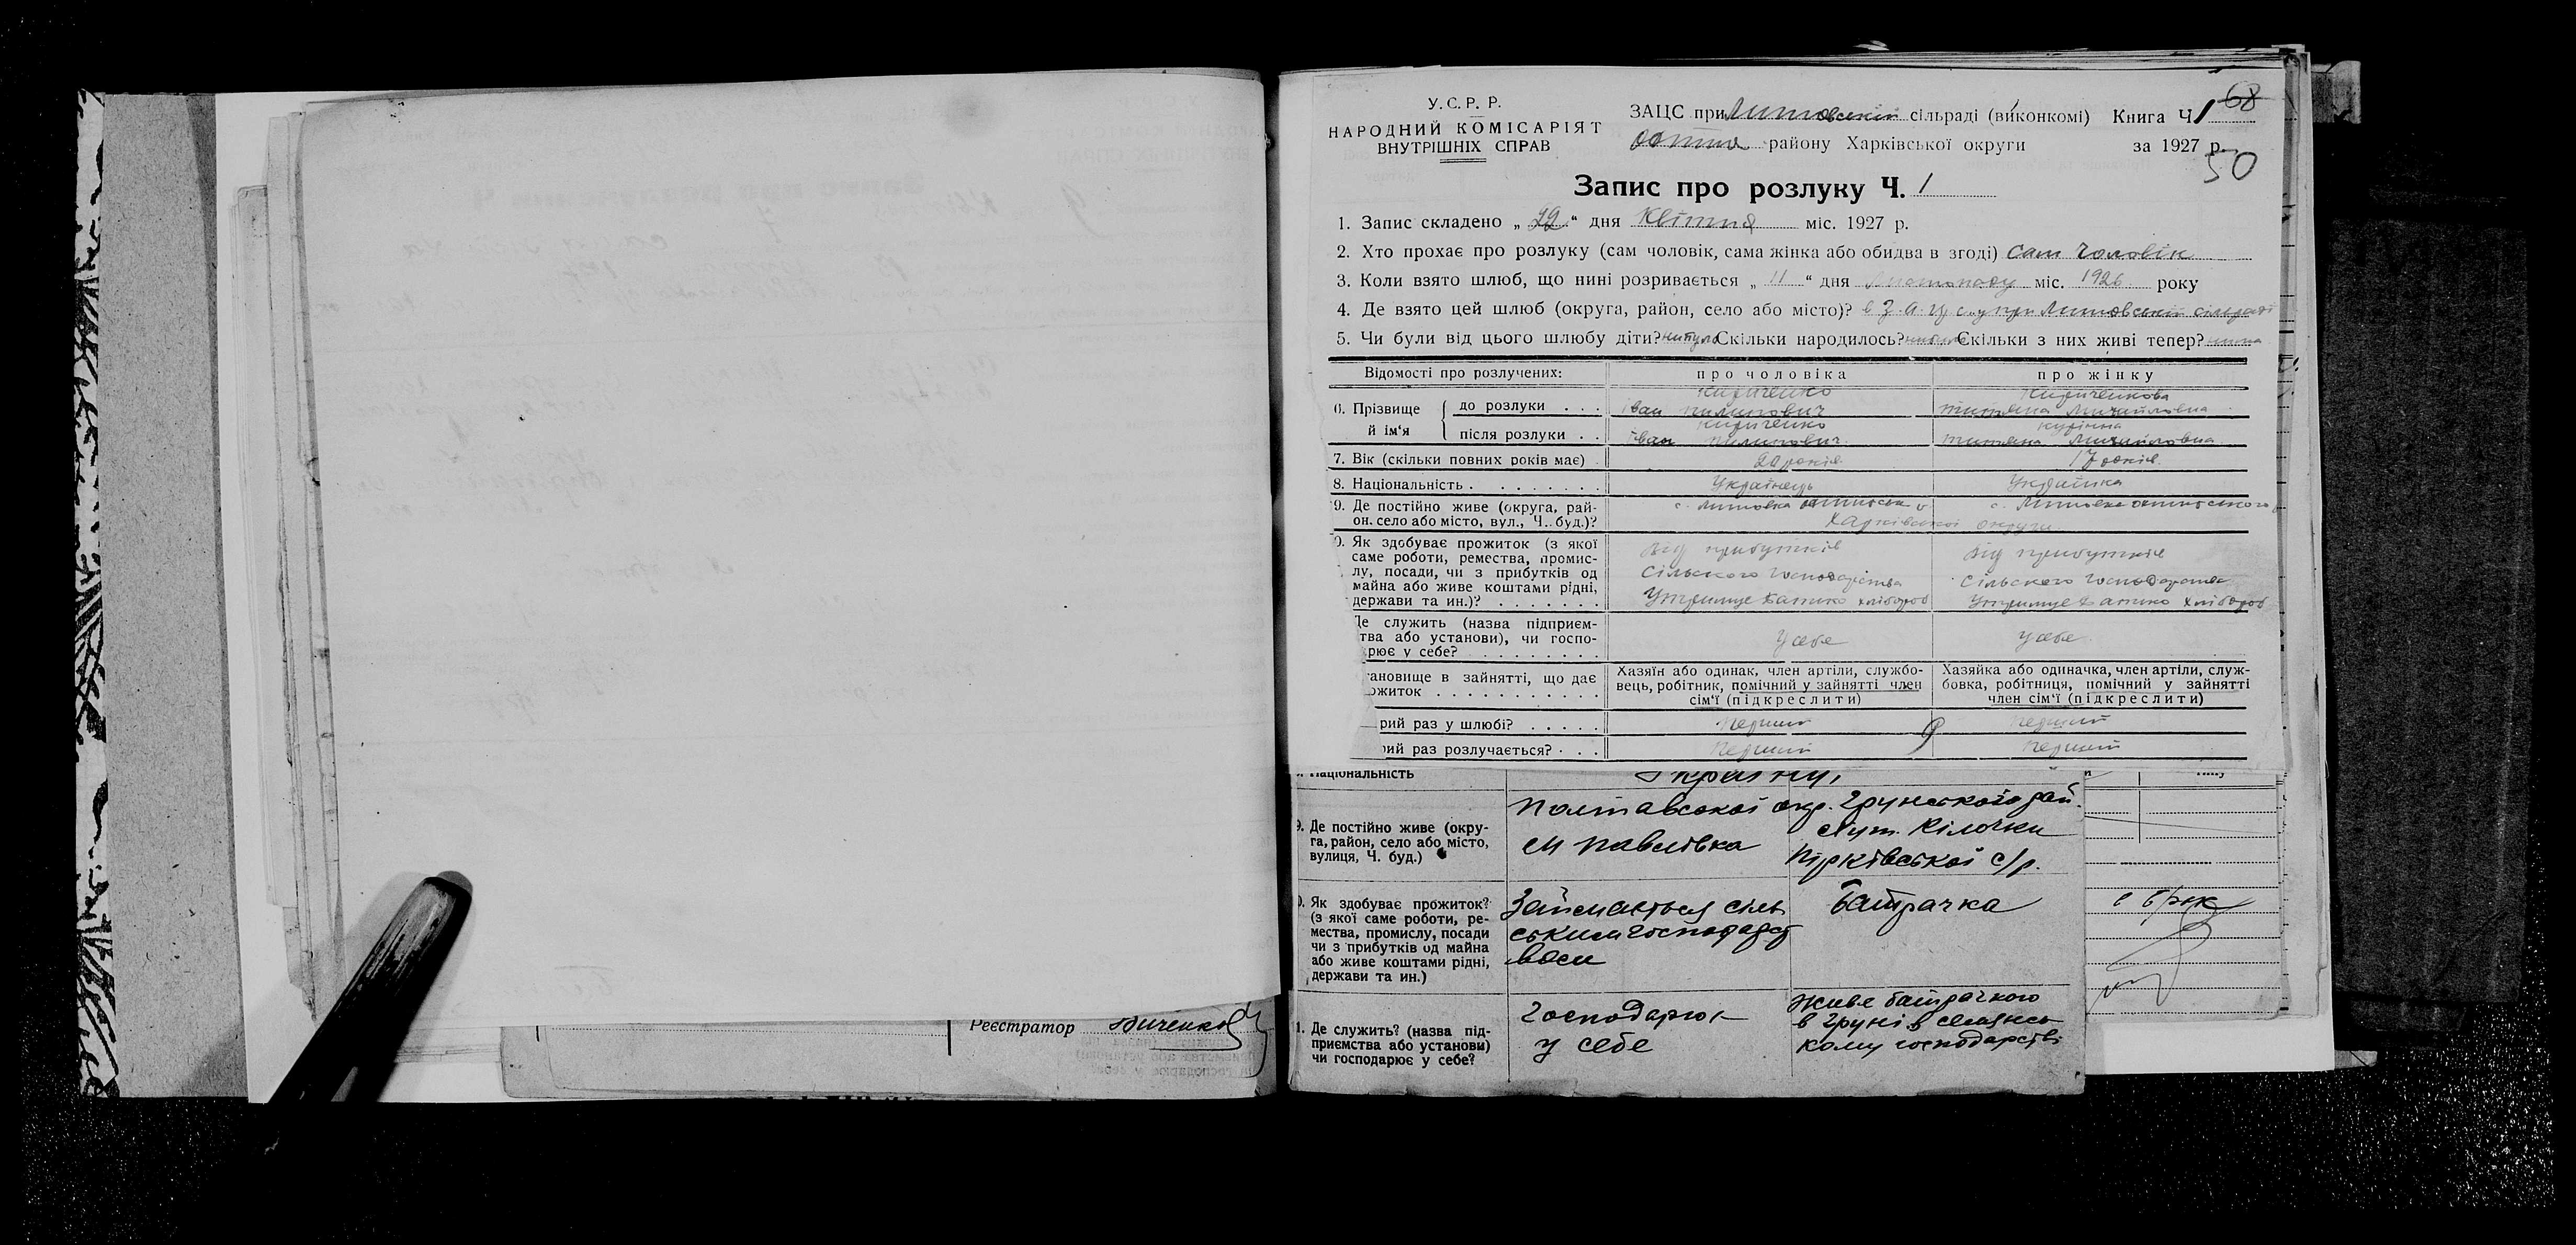 Реєстратор
У.С.Р.Р.
НАРОДНИЙ КОМІСАРІЯТ
ВНУТРІШНІХ СПРАВ
ЗАЦС при Литовській сільраді (виконкомі) Книга Ч. 1 68
району Харківської округи за 1927 р.
50
Запис про розлуку Ч. 1
1. Запис складено „ 22 “ дня Квітня міс. 1927 р.
2. Хто прохає про розлуку (сам чоловік, сама жінка або обидва в згоді) сам чоловік
3. Коли взято шлюб, що нині розривається „ 11 “ дня Листопаду міс. 1926 року
4. Де взято цей шлюб (округа, район, село або місто)? в З.А.Ц.С-у при Литовській сільраді
5. Чи були від цього шлюбу діти? Скільки народилось? Скільки з них живі тепер?
Відомості про розлучених: про чоловіка про жінку
6. Прізвище й ім'я до розлуки . . . Кириченко Іван Пилипович Кириченкова Титяна Михайловна
після розлуки . . Кириченко Іван Пилипович Курінна Титяна Михайловна
7. Вік (скільки повних років має) 20 років 17 років
8. Національність . . . . . . . . Українець Українка
9. Де постійно живе (округа, рай-
он, село або місто, вул., Ч. буд.)? с. Литовка Харківської округи с. Литовка
0. Як здобуває прожиток (з якої
саме роботи, ремества, промис-
лу, посади, чи з прибутків од
майна або живе коштами рідні,
держави та ин.)? . . . . . . .
від прибутків від прибутків
сільського господарства сільського господарства
Утримує батько хлібороб Утримує батько хлібороб
Де служить (назва підприєм-
тва або установи), чи госпо-
рює у себе? . . . . . . . . у себе у себе
тановище в зайнятті, що дає
ожиток . . . . . . . . . . .
Хазяїн або одинак, член артілі, службо-
вець, робітник, помічний у зайнятті член
сім'ї (підкреслити)
Хазяйка або одиначка, член артілі, служ-
бовка, робітниця, помічний у зайнятті
член сім'ї (підкреслити)
рий раз у шлюбі? . . . . . Перший Перший
ий раз розлучається? . . . Перший Перший
Національність
9. Де постійно живе (окру-
га, район, село або місто,
вулиця, Ч. буд.)
Полтавської окр. Грунського рай.
м Павлівка хут. Кілочки
Пірківської с/р.
0. Як здобуває прожиток?
(з якої саме роботи, ре-
мества, промислу, посади
чи з прибутків од майна
або живе коштами рідні,
держави та ин.)
Займається сіль
ським господарст
вом
Батрачка
1. Де служить? (назва під-
приємства або установи)
чи господарює у себе?
Господарює
у себе
живе батрачкою
в Груні в селянсь
кому господарстві